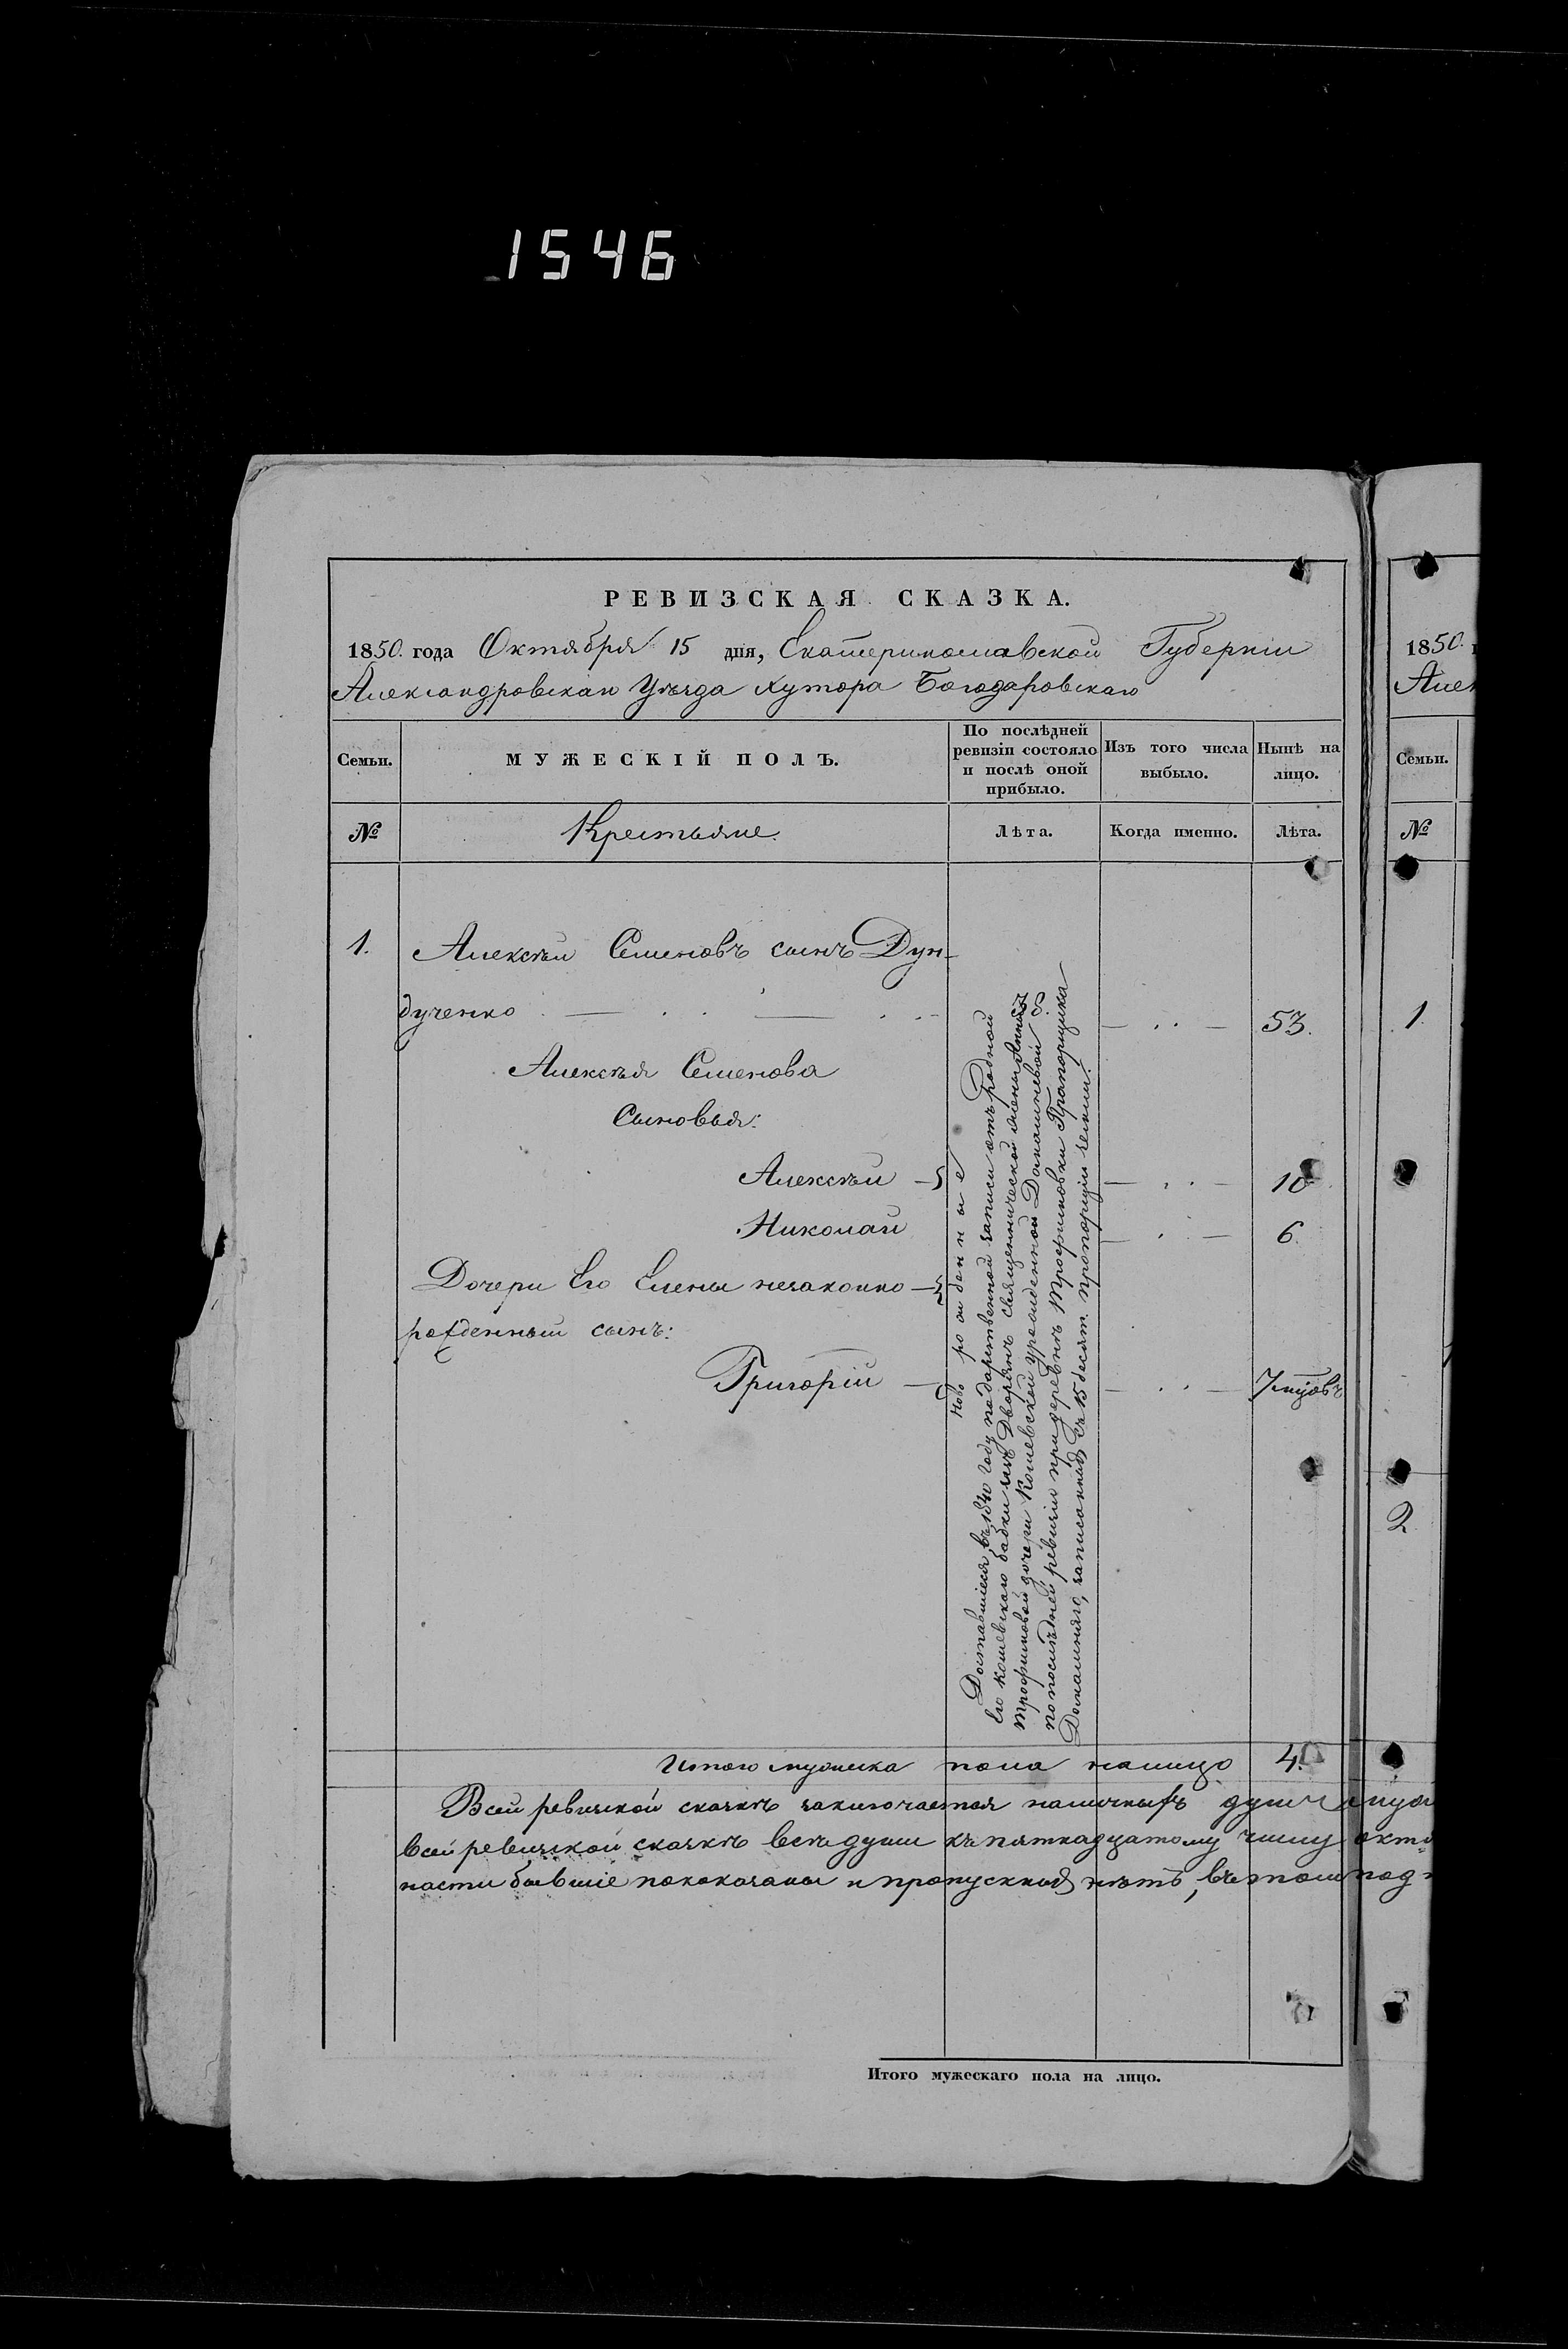 1546
РЕВИЗСКАЯ СКАЗКА.
1850. года Октября 15 дня, Екатеринославской Губерніи
Александровскаго Уѣзда Хутора Богодаровскаго
Семьи.
МУЖЕСКІЙ ПОЛЪ.
По послѣдней
ревизіи состояло
и послѣ оной
прибыло.
Изъ того числа
выбыло.
Нынѣ на
лицо.
№
Крестьяне.
Лѣта.
Когда именно.
Лѣта.
1. Алексѣй Семеновъ сынъ Дун-
дученко 53.
Алексѣя Семенова
Сыновья:
Алексѣй 10
Николай 6.
Дочери Его Елены незаконно
рожденный сынъ:
Григорій 7
Ново рожденные
Доставшіеся въ 1840 году по дарственной записи отъ родной
Его Кошевскаго бабки изъ Дворянъ священнической жены Анны
Трофимовой дочери Кошевской урожденной Домашневой
по послѣдней ревизіи при деревнѣ Трофимовки Прапорщика
Домашняго, записанны въ 15 десят. пропорціи земли.
Итого мужеска пола налицо 4.
В сей ревизской сказкѣ заключается наличныхъ душъ
всей ревизской сказкѣ всѣ души къ пятнадцатому числу
насти бывшіе показаны и пропускныхъ нѣтъ, въ томъ
Итого мужескаго пола на лицо.
1850.
Алек
Семьи.
№
1.
2.